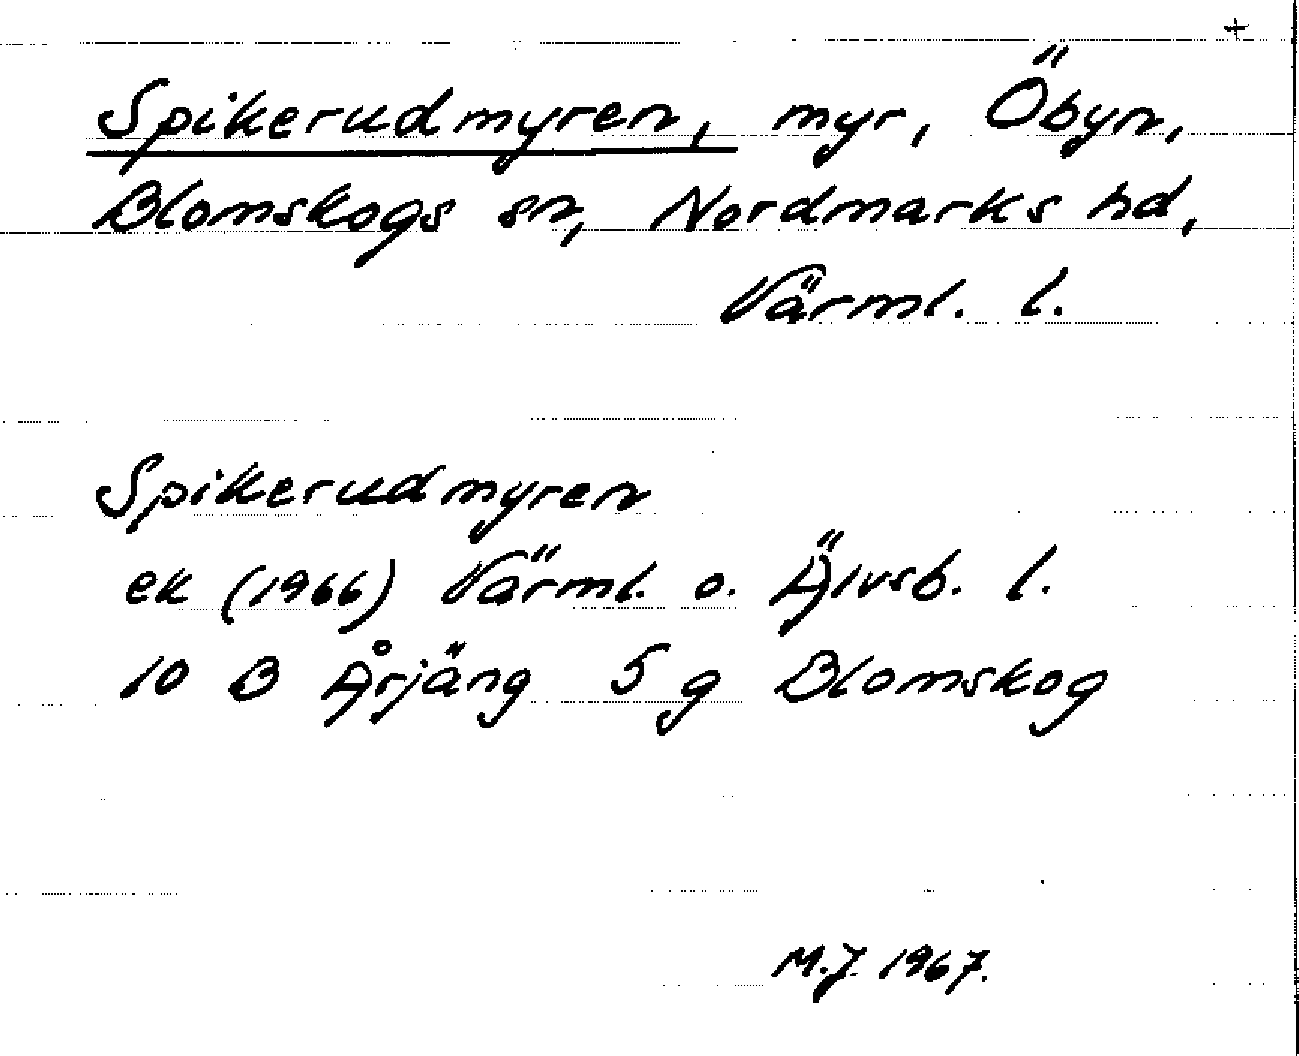 +
Spikerudmyren, myr, Öbyn,
Blomskogs sn, Nordmarks hd,
Värml. l.
Spikerudmyren
ek (1966) Värml. o. Älvsb. l.
10 B Årjäng 5 g Blomskog
M.J. 1967.